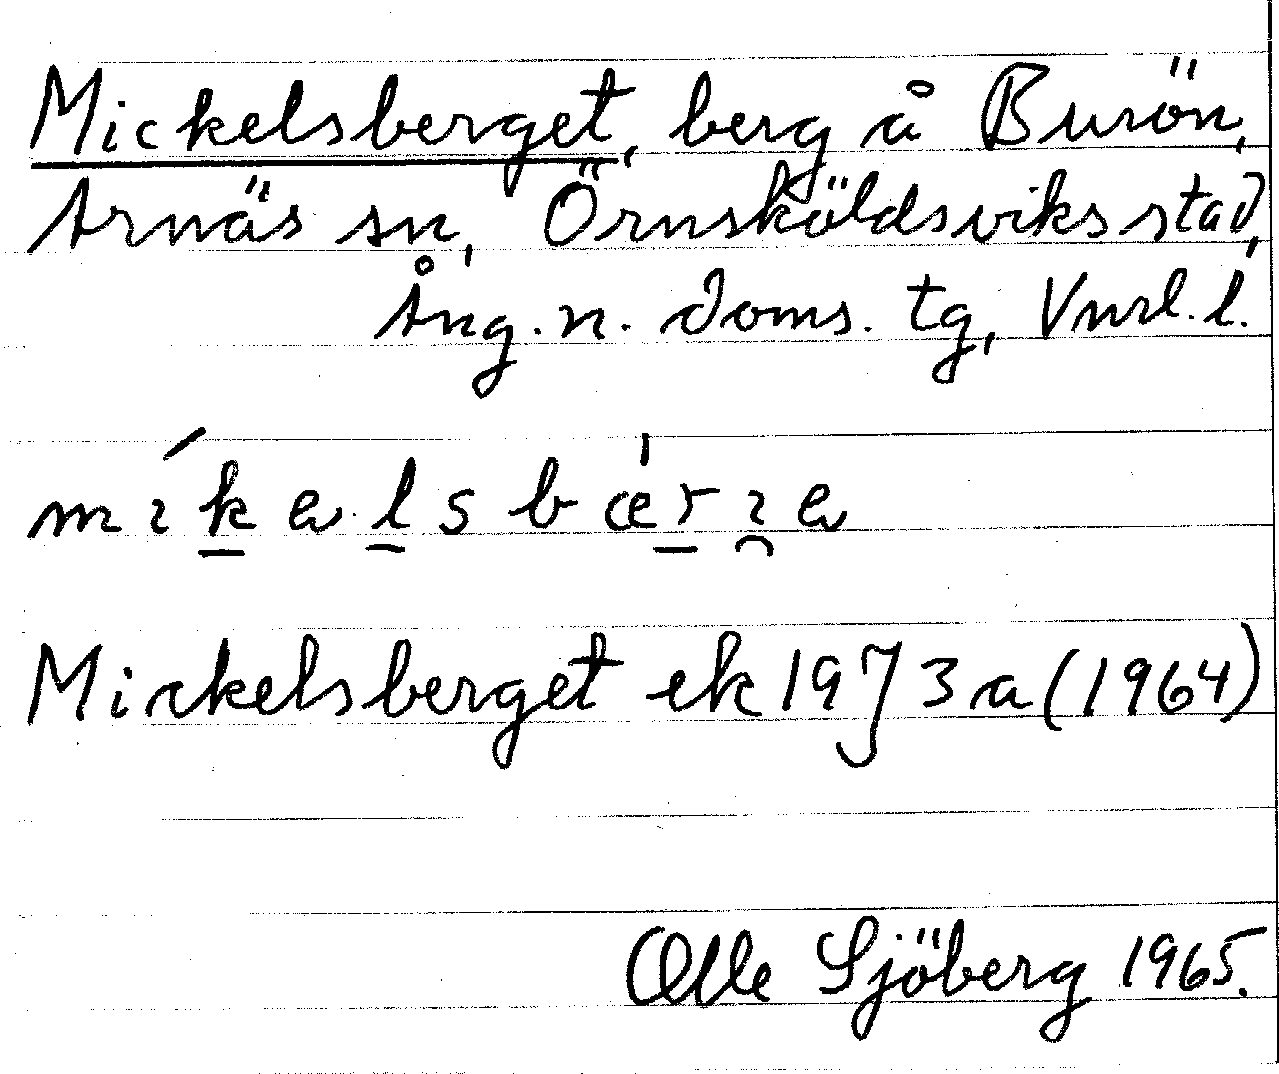 Mickelsberget, berg å Burön,
Arnäs sn, Örnsköldsviks stad,
Ång. n. doms. tg, Vnrl. l.
Mickelsberget ek 19J3a (1964)
Olle Sjöberg 1965.